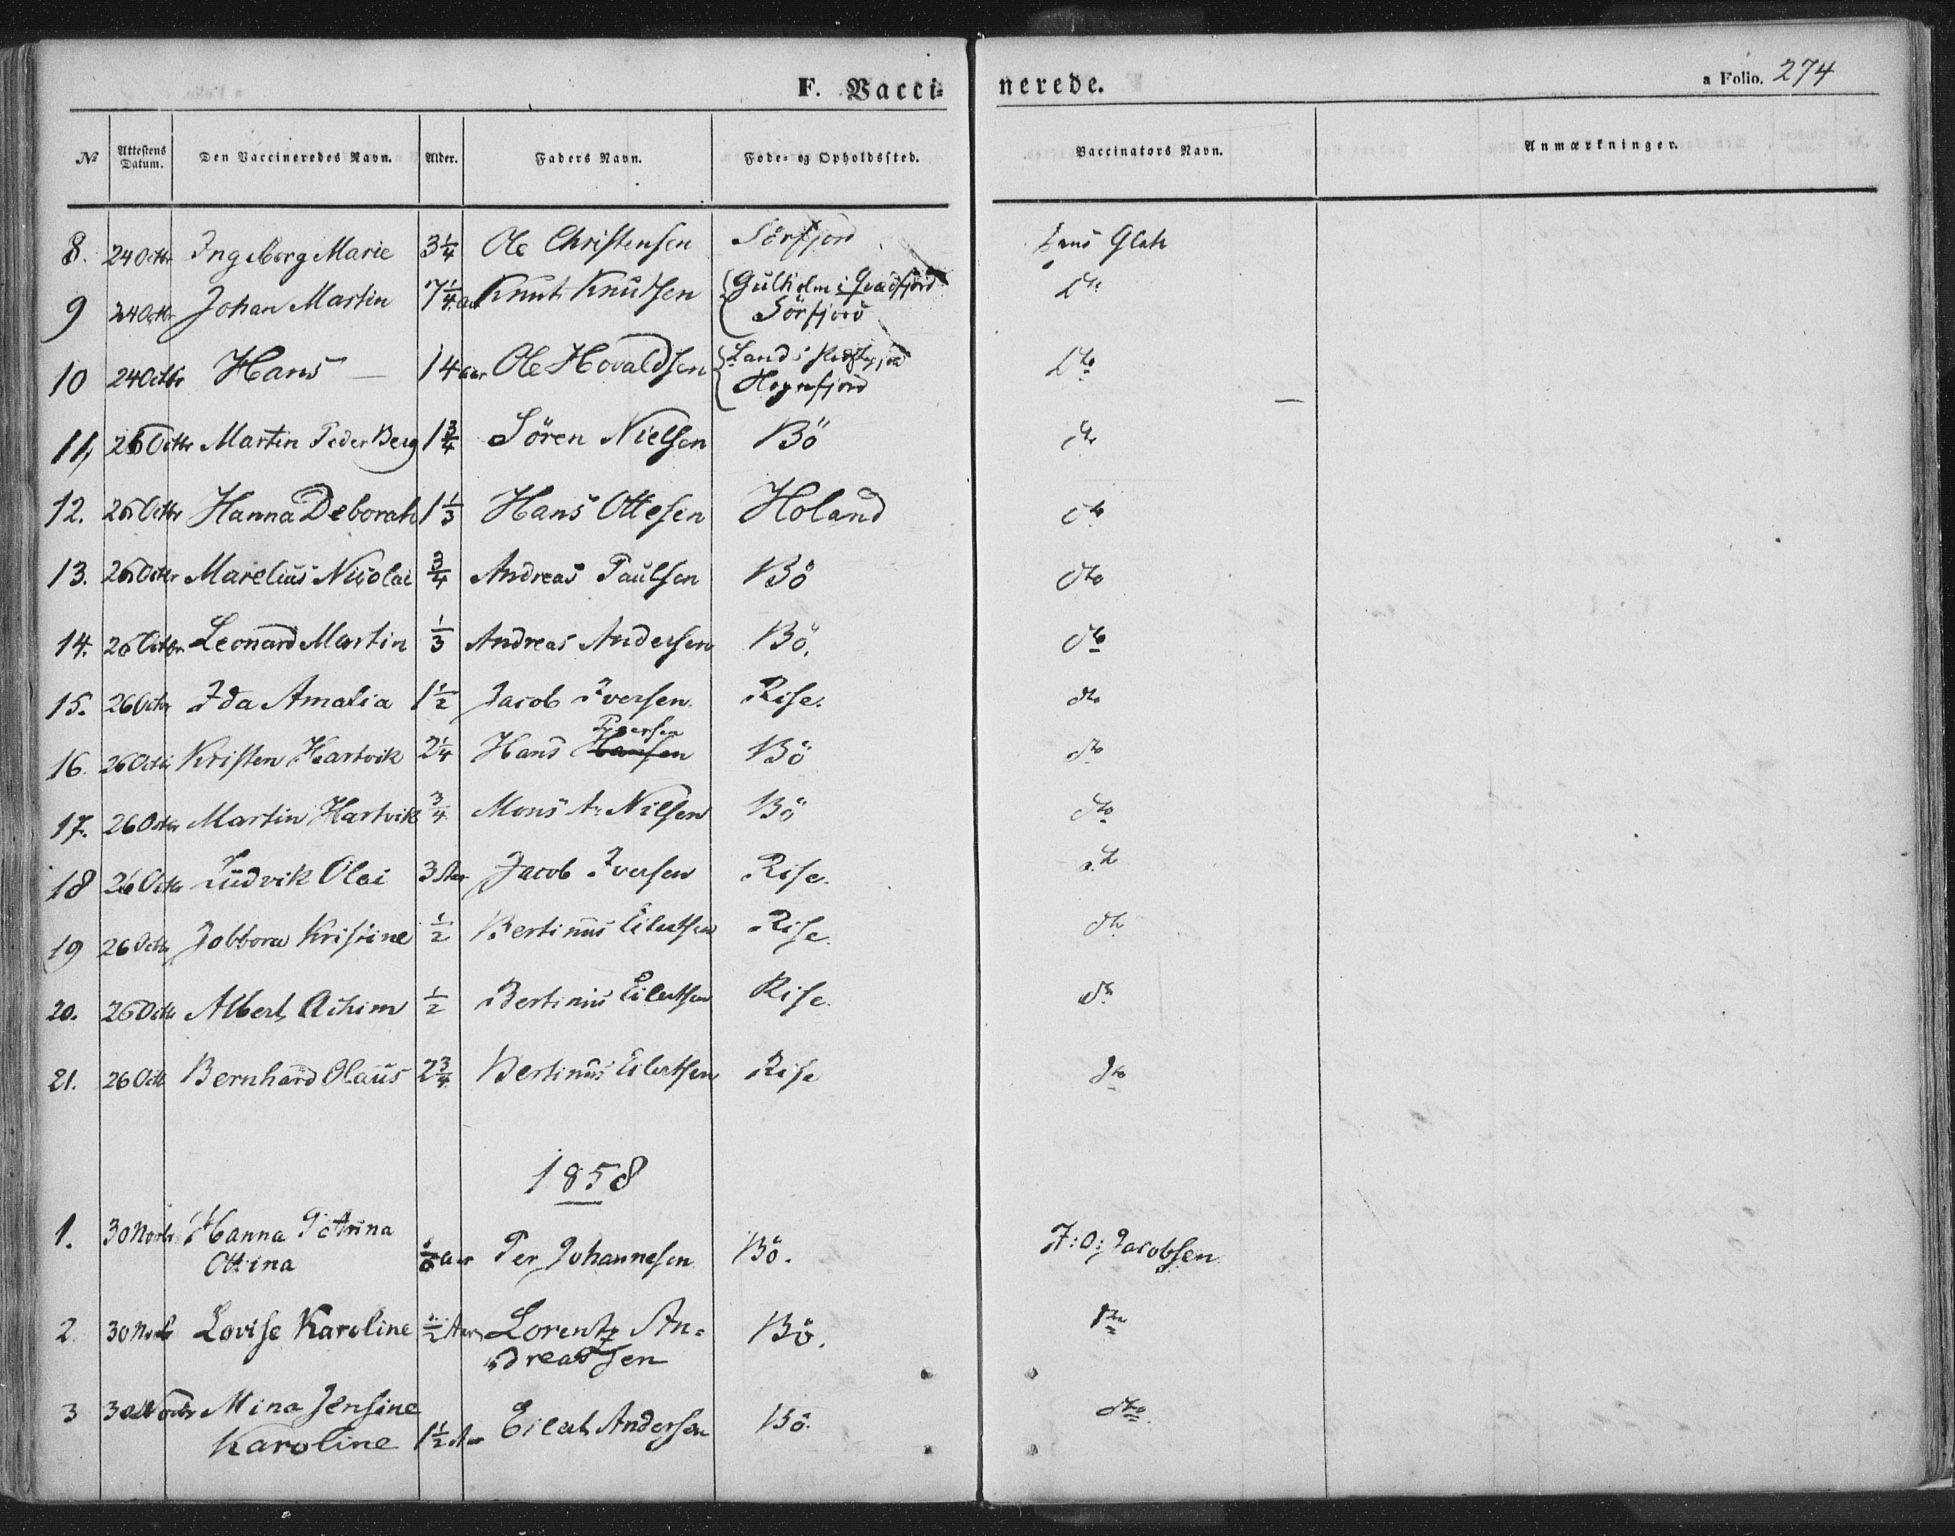 F. Vacci- nerede. a Folio. 274
№ Attestens Datum. Den Vaccineredes Navn. Alder. Faders Navn. Føde- og Opholdssted. Vaccinators Navn. Anmærkninger.
8. 24 Octbr Ingeborg Marie 3 1/4 Ole Christensen Sörfjord Hans Glate
9 24 Octbr Johan Martin 7 1/4 aar Knut Knudsen Gulholm i
Sörfjord Dto
10 24 Octbr Hans — 14 aar Ole Hovaldsen Land i
Hognfjord Dto
11, 26 Octbr Martin Peder Berg 1 3/4 Sören Nielsen Bö dto
12. 26 Octbr Hanna Deborah 1 1/3 Hans Ottesen Holand dto
13. 26 Octbr Marelius Nicolai 3/4 Andreas Paulsen Bö dto
14. 26 Octbr Leonard Martin 1/3 Andreas Andersen Bö. dto
15. 26 Octbr Ida Amalia 1 1/2 Jacob Iversen Rise. dto
16. 26 Octbr Kristen Hartvik 2 1/4 Hans Hansen Bö dto
17. 26 Octbr Martin Hartvik 3/4 Mons A: Nilsen Bö dto
18 26 Octbr Ludvik Olai 3 Aar Jacob Iversen Rise. dto
19 26 Octbr Jobbora Kristine 1/2 Bertinus Eilertsen Rise. dto
20. 26 Octbr Albert Achim 1/2 Bertinus Eilertsen Rise. dto
21. 26 Octb Bernhard Olaus 2 3/4 Bertinus Eilertsen Rise dto
1858
1. 30 Novbr Hanna Petrina
Ottina aar Per Johannesen Bö. J: O: Jacobsen
2. 30 Novb Lovise Karoline 1/2 Aar Lorentz An-
dreassen Bö. dto
3 30 Novbr Mina Jensine
Karoline 1 1/2 Aar Eilert Andersen Bö. dto